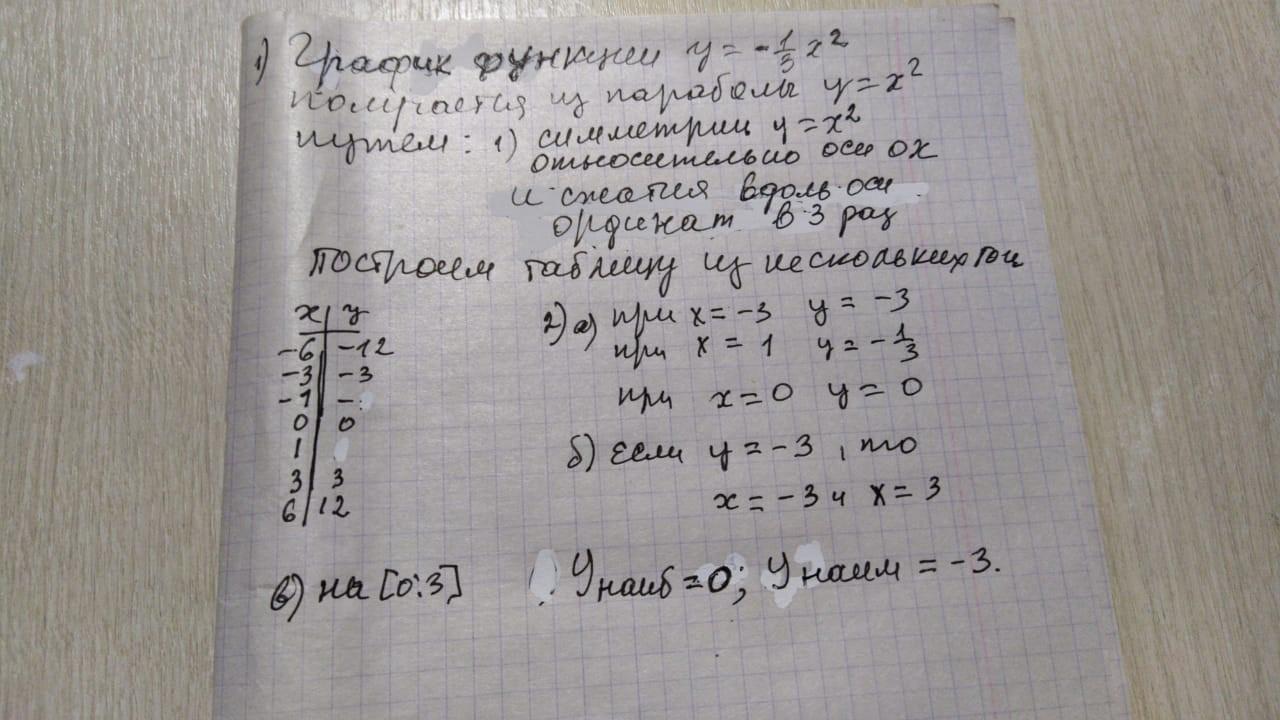 1) График функции y = -1/3 x²
получается из параболы y = x²
путем: 1) симметрии y = x²
относительно оси ox
и сжатия вдоль оси
ординат в 3 раз
построем таблицу из нескольких точ
x | y
-6 | -12
-3 | -3
-1 | -
0 | 0
1 |
3 | 3
6 | 12
2) а) при x = -3 y = -3
при x = 1 y = -1/3
при x = 0 y = 0
б) Если y = -3, то
x = -3 и x = 3
в) на [0:3] Yнаиб = 0; Yнаим = -3.